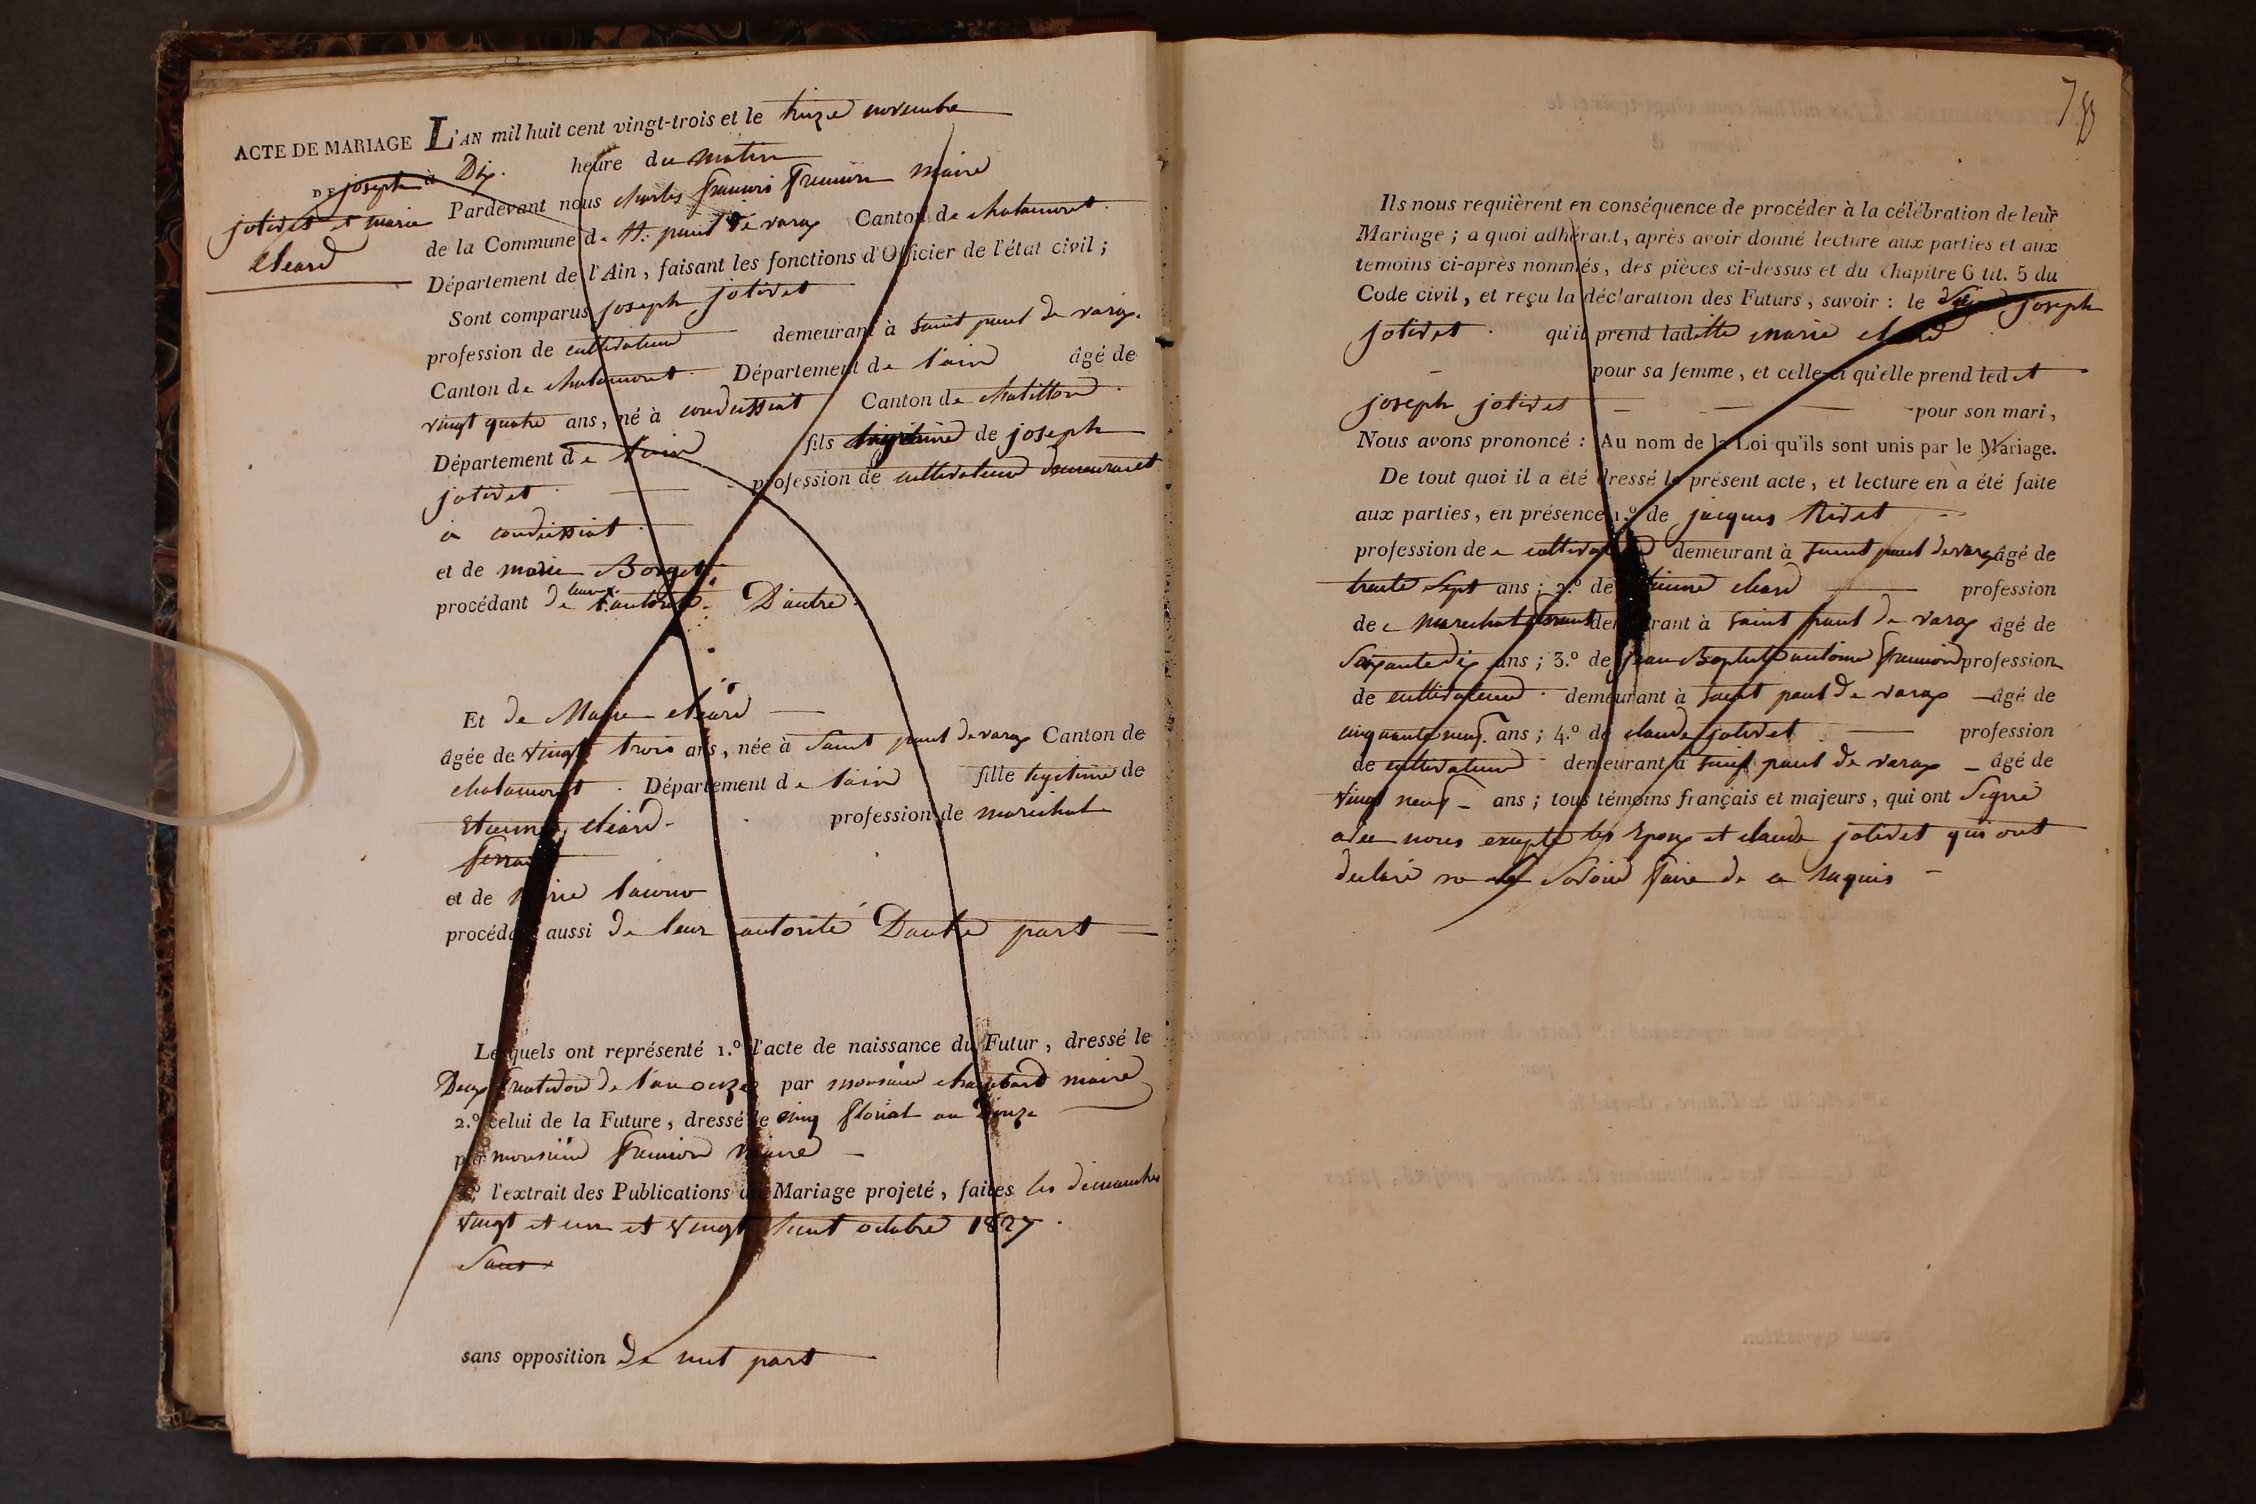 ACTE DE MARIAGE
DE joseph
jolivet et marie
cleard
L'AN mil huit cent vingt-trois et le treize novembre
à Dix heure du matin
Pardevant nous charles françois maire
de la Commune de St. paul de varax Canton de chalamont
Département de l'Ain, faisant les fonctions d'Officier de l'état civil;
Sont comparus joseph jolivet
profession de cultivateur demeurant à saint paul de varax
Canton de chalamont Département de l'ain âgé de
vingt quatre ans, né à condeissiat Canton de chatillon
Département de l'ain fils légitime de joseph
jolivet profession de cultivateur demeurant
à condeissiat
et de marie Borget
procédant de leur autorité D'autre
Et de Marie cleard
âgée de vingt trois ans, née à saint paul de varax Canton de
chalamont Département de l'ain fille legitime de
Etienne cleard profession de marechal
ferrant
et de marie
procédant aussi de leur autorité Dautre part
Lesquels ont représenté 1.º l'acte de naissance du Futur, dressé le
Deux de l'an onze par monsieur chambard maire
2.º celui de la Future, dressé le cinq floréal an Douze
par monsieur maire
3.º l'extrait des Publications du Mariage projeté, faites les dimanches
vingt et un et vingt huit octobre 1827
Sans
sans opposition de nul part
Ils nous requièrent en conséquence de procéder à la célébration de leur
Mariage; a quoi adhérant, après avoir donné lecture aux parties et aux
temoins ci-après nommés, des pièces ci-dessus et du chapitre 6 tit. 5 du
Code civil, et reçu la déclaration des Futurs, savoir: le dit joseph
jolivet qu'il prend laditte marie cleard
pour sa femme, et celle-ci qu'elle prend ledet
joseph jolivet pour son mari,
Nous avons prononcé: Au nom de la Loi qu'ils sont unis par le Mariage.
De tout quoi il a été dressé le présent acte, et lecture en a été faite
aux parties, en présence 1.º de jacques
profession de cultivateur demeurant à saint paul de varax âgé de
trante sept ans; 2.º de Etienne cleard profession
de marechal ferrant demeurant à saint paul de varax âgé de
soixante dix ans; 3.º de jean Baptiste antoine profession
de cultivateur demeurant à saint paul de varax âgé de
cinquante neuf ans; 4.º de claude jolivet profession
de cultivateur demeurant à saint paul de varax âgé de
vingt neuf ans; tous témoins français et majeurs, qui ont signé
avec nous excepté les Epoux et claude jolivet qui ont
declaré ne savoir faire de ce requis